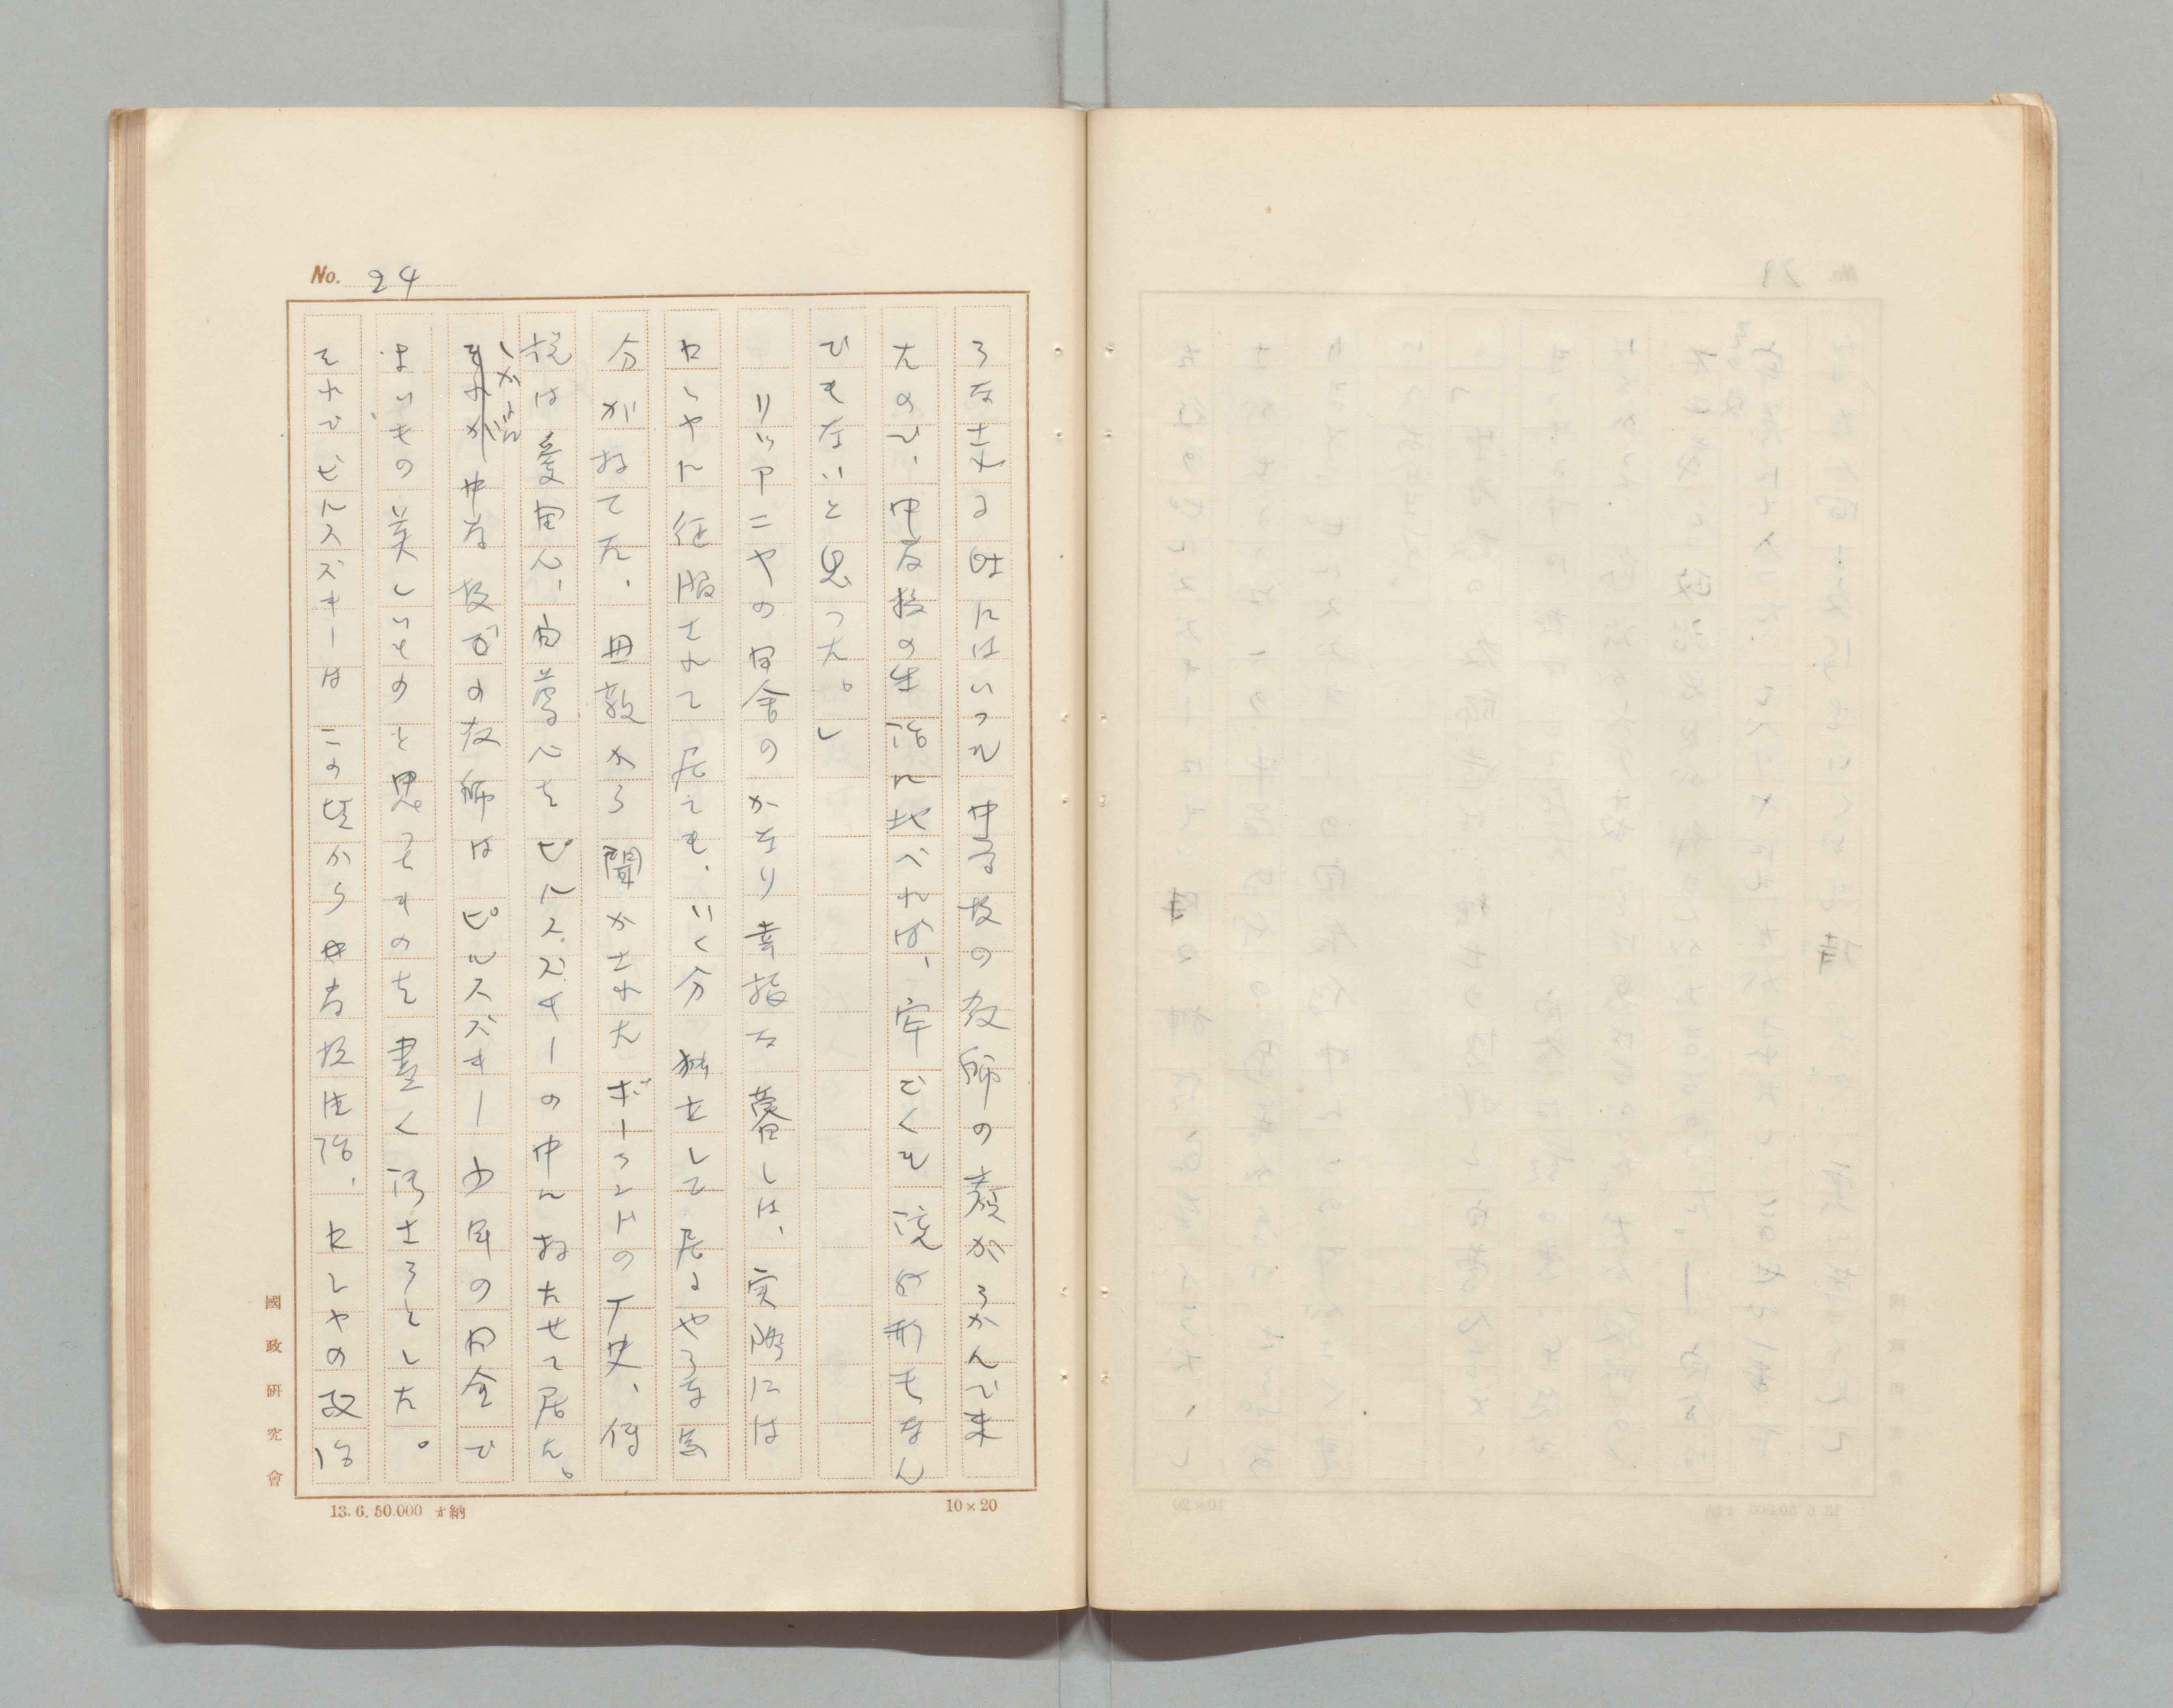 No. 24
うな夢を見る時にはいつも中学校の教師の顔がうかんで来
たので、中学校の生活に比べれば、牢ごくも流刑も なん
でもないと思つた。」
リツアニヤの田舎のかなり幸福な暮しは、実際には
ロシヤに征服されて居ても、いく分 独立して居るやうな気
分がもてた、母親から聞かされたポーランドの歴史、傳
説は愛国心、自尊心をピルスズキーの中にもたせて居た。
しかるに中学校がの教師は ピルスズキー少年の田舎で
よいもの美しいものと思つたものを 悪く 汚さうとした。
それでピルスズキーは この時から 中学校生活、ロシヤの政治
國政研究會
13.6.50.000 オ納
10×20